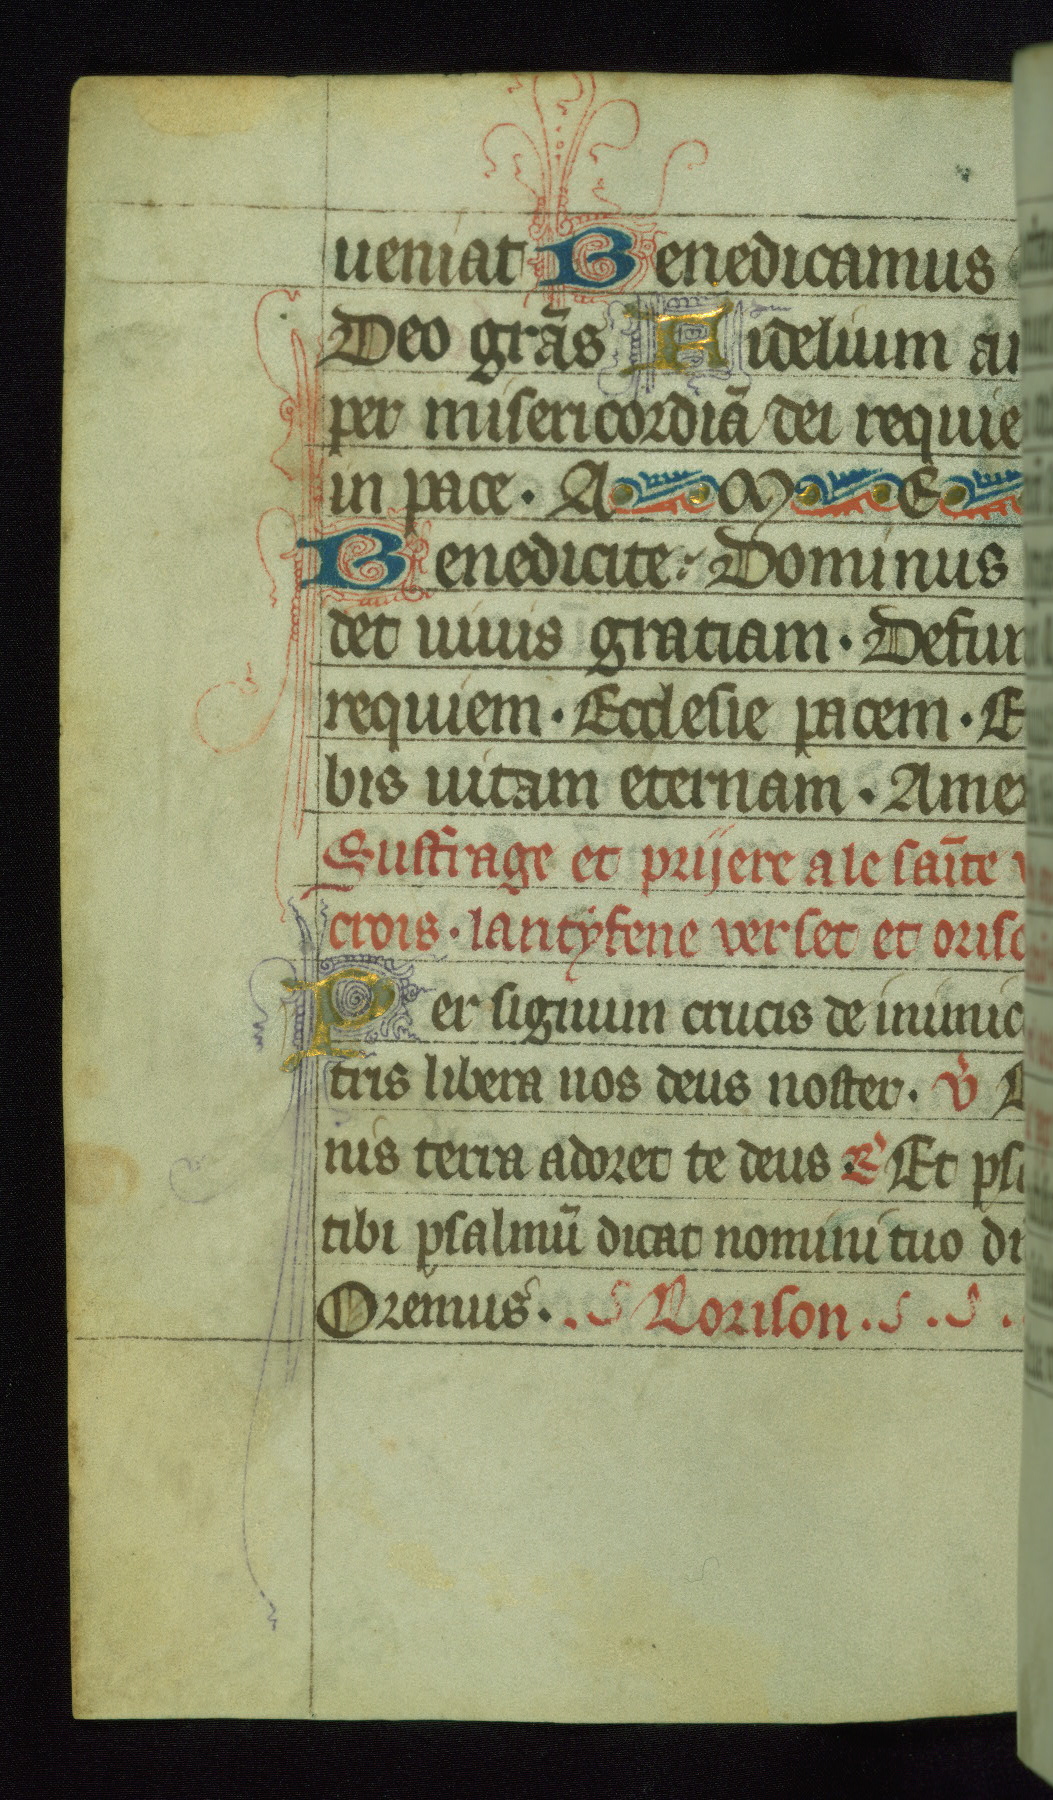 ueniat Benedicamus
Deo grãs Fidelium
per misericordiã dei requie
in pace · A M E
Benedicite · Dominus
det uiuis gratiam · Defun
requiem · Ecclesie pacem · E
bis uitam eternam · Amen
Suffrage et prijere a le saĩte
crois · lantyfene verset et oriso
Per signum crucis de inimic
tris libera nos deus noster · v̾
nis terra adoret te deus · R̾ Et psa
tibi psalmũ dicat nomini tuo
Oremus · Lorison · . .